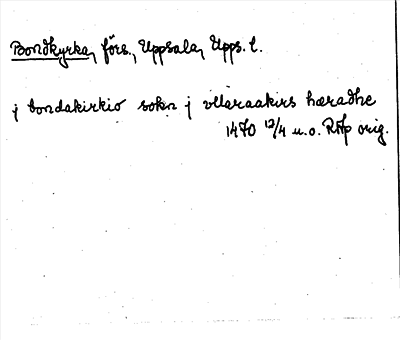 Bondkyrka, förs., Uppsala, Upps. l.
j bondakirkio sokn j vlleraakirs hæradhe
1470 12/4 u.o. RAp orig.